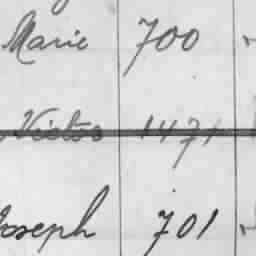 Marie 700
Victor 1471
Joseph 701